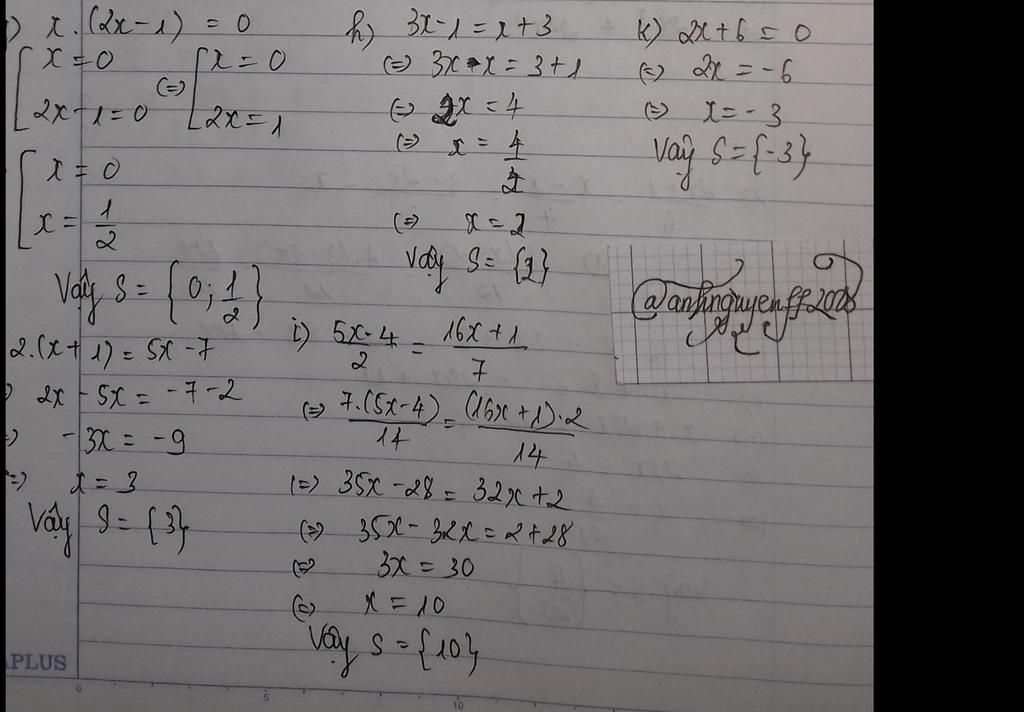 ) x.(2x-1) = 0
[x=0
2x-1=0 (=) [x=0
2x=1
[x=0
x=1/2
Vậy S={0;1/2}
2.(x+1)=5x-7
) 2x-5x=-7-2
=) -3x=-9
=) x=3
Vậy S={3}
h) 3x-1=x+3
(=) 3x-x=3+1
(=) 2x=4
(=) x=4/2
(=) x=2
Vậy S={2}
i) 5x-4/2=16x+1/7
(=) 7.(5x-4)/14=(16x+1).2/14
(=) 35x-28=32x+2
(=) 35x-32x=2+28
(=) 3x=30
(=) x=10
Vậy S={10}
k) 2x+6=0
(=) 2x=-6
(=) x=-3
Vậy S={-3}
APLUS
0 5 10